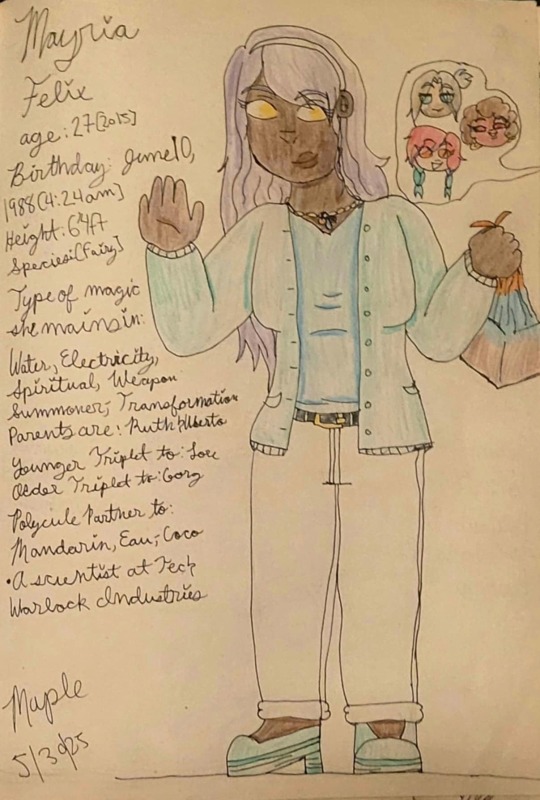 Mayria
Felix
age: 27[2015]
Birthday: June 10,
1988(4:24am]
Height: 6'4ft
Species:[Fairy]
Type of magic
she mains in:
Water, Electricity,
Spiritual, Weapon
Summoner, Transformation
Parents are: Ruth & Alberto
Younger Triplet to: Lou
Older Triplet to: Gorg
Polycule Partner to:
Mandarin, Eau, Coco
•A scientist at Tech
Warlock Industries
Maple
5/30/25